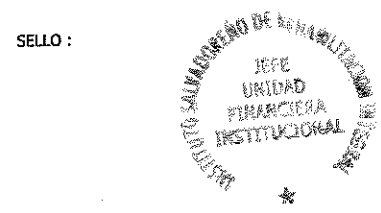 SELLO :
INSTITUTO SALVADOREÑO DE REHABILITACION
JEFE
UNIDAD
FINANCIERA
INSTITUCIONAL